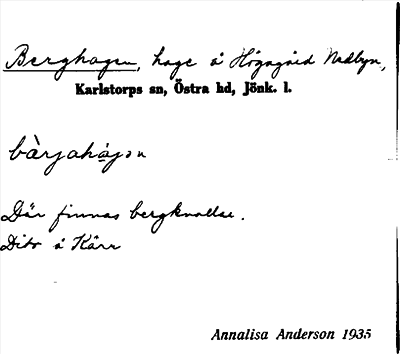 Berghagen, hage å Högagärd Nedbyn,
Karlstorps sn, Östra hd, Jönk. l.
bàrjahágən
Där finnas bergknallar.
Dito å Kärr
Annalisa Anderson 1935